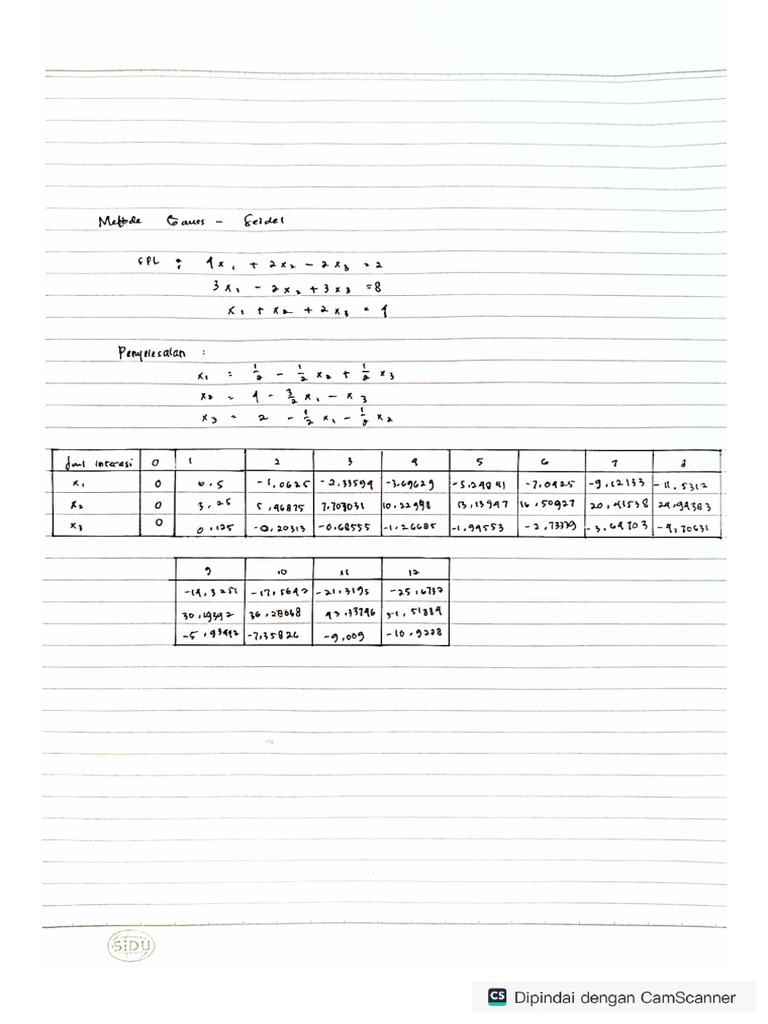 Metode Gauss - Seidel
SPL : 4x₁ + 2x₂ - 2x₃ = 2
3x₁ - 2x₂ + 3x₃ = 8
x₁ + x₂ + 2x₃ = 4
Penyelesaian :
x₁ = 1/2 - 1/2 x₂ + 1/2 x₃
x₂ = 4 - 3/2 x₁ - x₃
x₃ = 2 - 1/2 x₁ - 1/2 x₂
Juml interasi 0 1 2 3 4 5 6 7 8
x₁ 0 0.5 -1,0625 -2.33594 -3,69629 -5.24841 -7,0425 -9,12133 -11,5312
x₂ 0 3,25 5,46875 7.707031 10,22998 13,13947 16,50927 20,41538 24,94383
x₃ 0 0,125 -0,20313 -0,68555 -1,26685 -1,94553 -2,73339 -3,64703 -4,70631
9 10 11 12
-14,3251 -17,5647 -21,3195 -25,6732
30,19392 36,28068 43,33746 51,51884
-5,93442 -7,35826 -9,009 -10,9228
SiDU
CS Dipindai dengan CamScanner